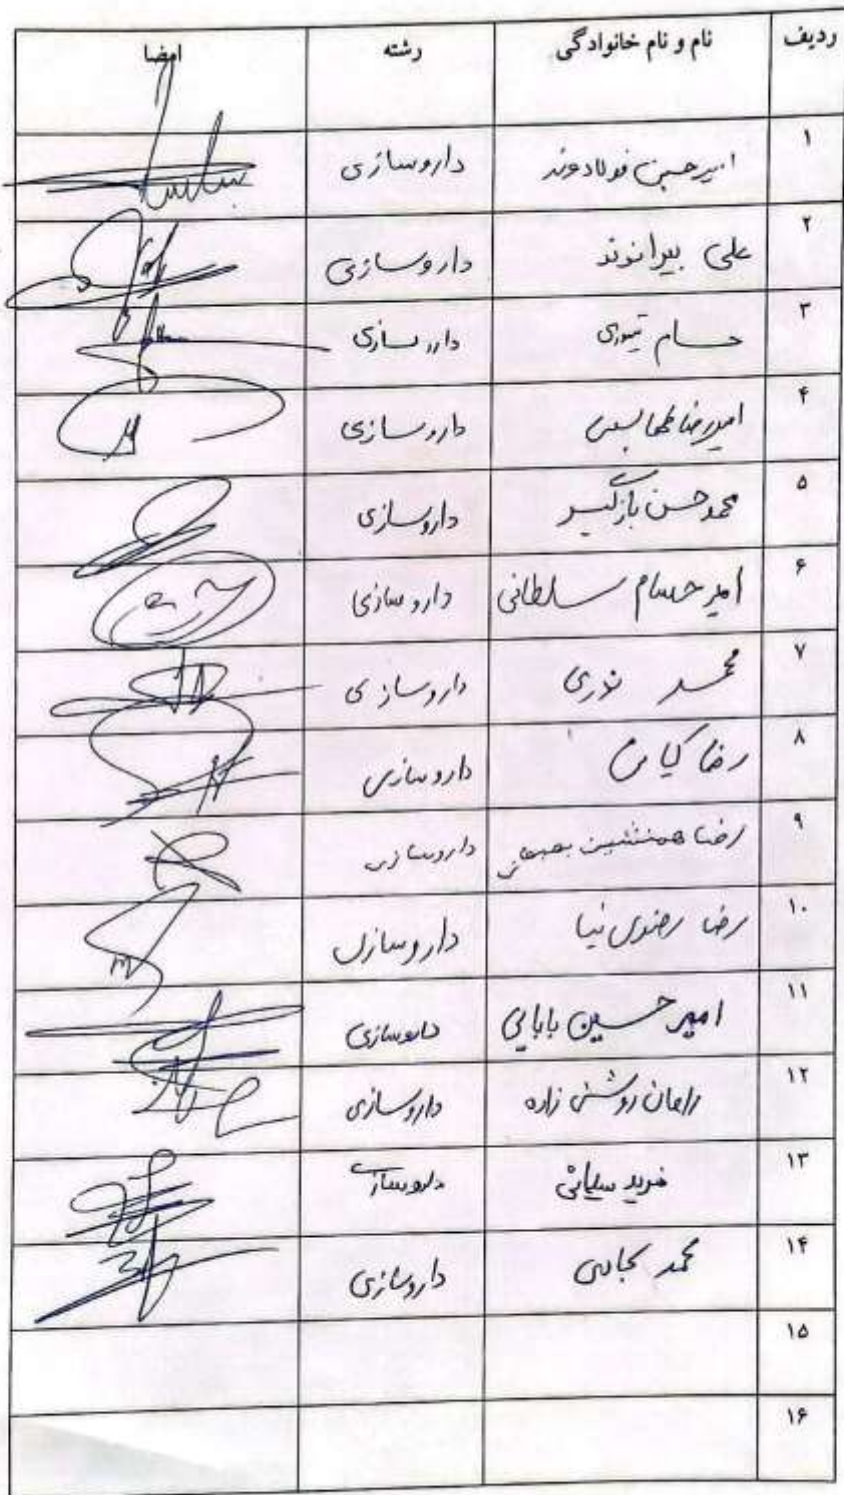 ردیف نام و نام خانوادگی رشته امضا
۱ امیرحسین فولادوند داروسازی
۲ علی بیرانوند داروسازی
۳ حسام تیموری داروسازی
۴ امیررضا داروسازی
۵ محمدحسن بازگیر داروسازی
۶ امیر حسام سلطانی داروسازی
۷ محمد نوری داروسازی
۸ رضا داروسازی
۹ رضا همنشین بهبهانی داروسازی
۱۰ رضا رضوی نیا داروسازی
۱۱ امیر حسین بابایی داروسازی
۱۲ روشنی زاده داروسازی
۱۳ داروسازی
۱۴ محمد داروسازی
۱۵
۱۶